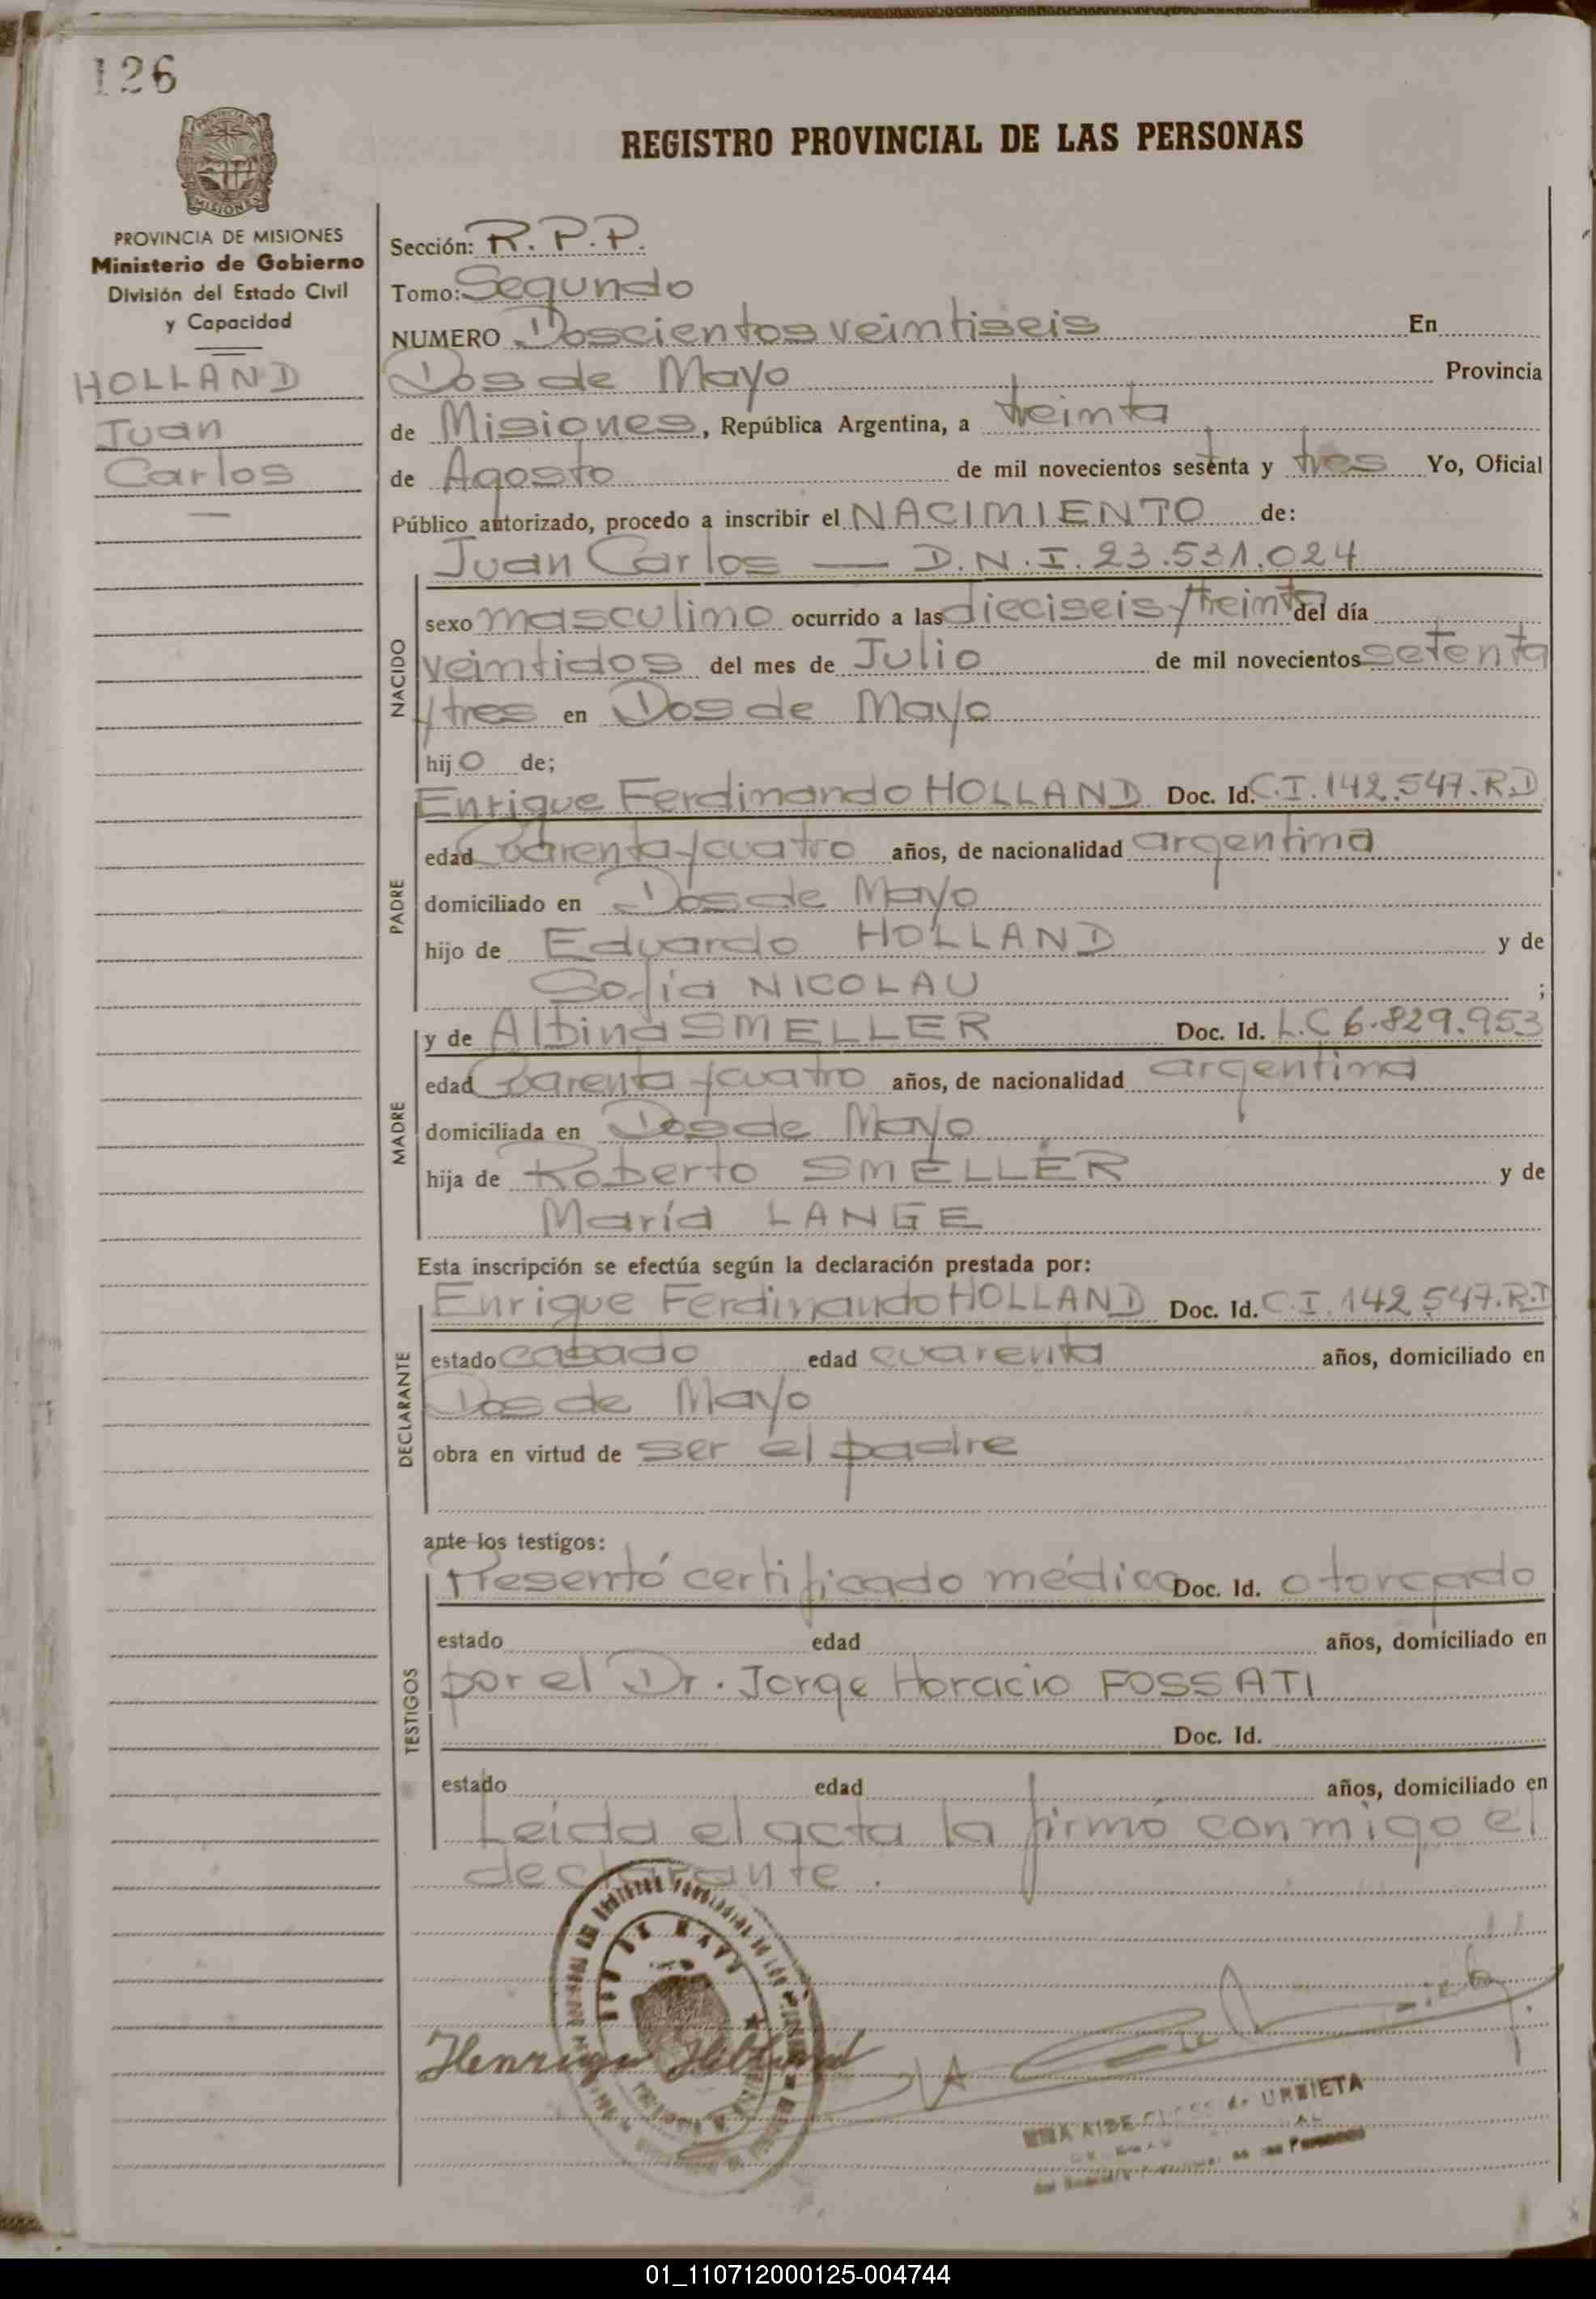 126
REGISTRO PROVINCIAL DE LAS PERSONAS
PROVINCIA DE MISIONES
Ministerio de Gobierno
División del Estado Civil
y Capacidad
HOLLAND
Juan
Carlos
Sección: R.P.P.
Tomo: Segundo
NUMERO Doscientos veintiseis En
Dos de Mayo Provincia
de Misiones, República Argentina, a treinta
de Agosto de mil novecientos sesenta y tres Yo, Oficial
Público autorizado, procedo a inscribir el NACIMIENTO de:
Juan Carlos — D.N.I. 23.531.024
NACIDO
sexo masculino ocurrido a las dieciseis y treinta del día
veintidos del mes de Julio de mil novecientos setenta
y tres en Dos de Mayo
hijo de;
PADRE
Enrique Ferdinando HOLLAND Doc. Id. C.I. 142.547.R.D
edad Cuarenta y cuatro años, de nacionalidad argentina
domiciliado en Dos de Mayo
hijo de Eduardo HOLLAND y de
Sofia NICOLAU ;
MADRE
y de Albina SMELLER Doc. Id. L.C 6.829.953
edad Cuarenta y cuatro años, de nacionalidad argentina
domiciliada en Dos de Mayo
hija de Roberto SMELLER y de
María LANGE
Esta inscripción se efectúa según la declaración prestada por:
DECLARANTE
Enrique Ferdinando HOLLAND Doc. Id. C.I. 142.547.R.D
estado casado edad cuarenta años, domiciliado en
Dos de Mayo
obra en virtud de ser el padre
ante los testigos:
TESTIGOS
Presentó certificado médico Doc. Id. otorgado
estado edad años, domiciliado en
por el Dr. Jorge Horacio FOSSATI
Doc. Id.
estado edad años, domiciliado en
Leída el acta la firmó conmigo el
declarante.
DOS DE MAYO
de URBIETA
01_110712000125-004744